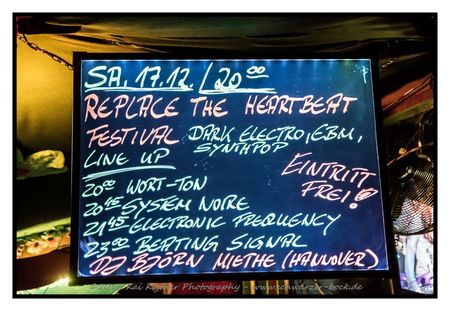 SA. 17.12. / 20⁰⁰
REPLACE THE HEARTBEAT
FESTIVAL DARK ELECTRO, EBM,
SYNTHPOP
LINE UP
EINTRITT
FREI!
20⁰⁰ WORT-TON
20⁴⁵ SYSTEM NOIRE
21⁴⁵ ELECTRONIC FREQUENCY
23⁰⁰ BEATING SIGNAL
DJ BJÖRN MIETHE (HANNOVER)
Photography - www.schwarzer-bock.de